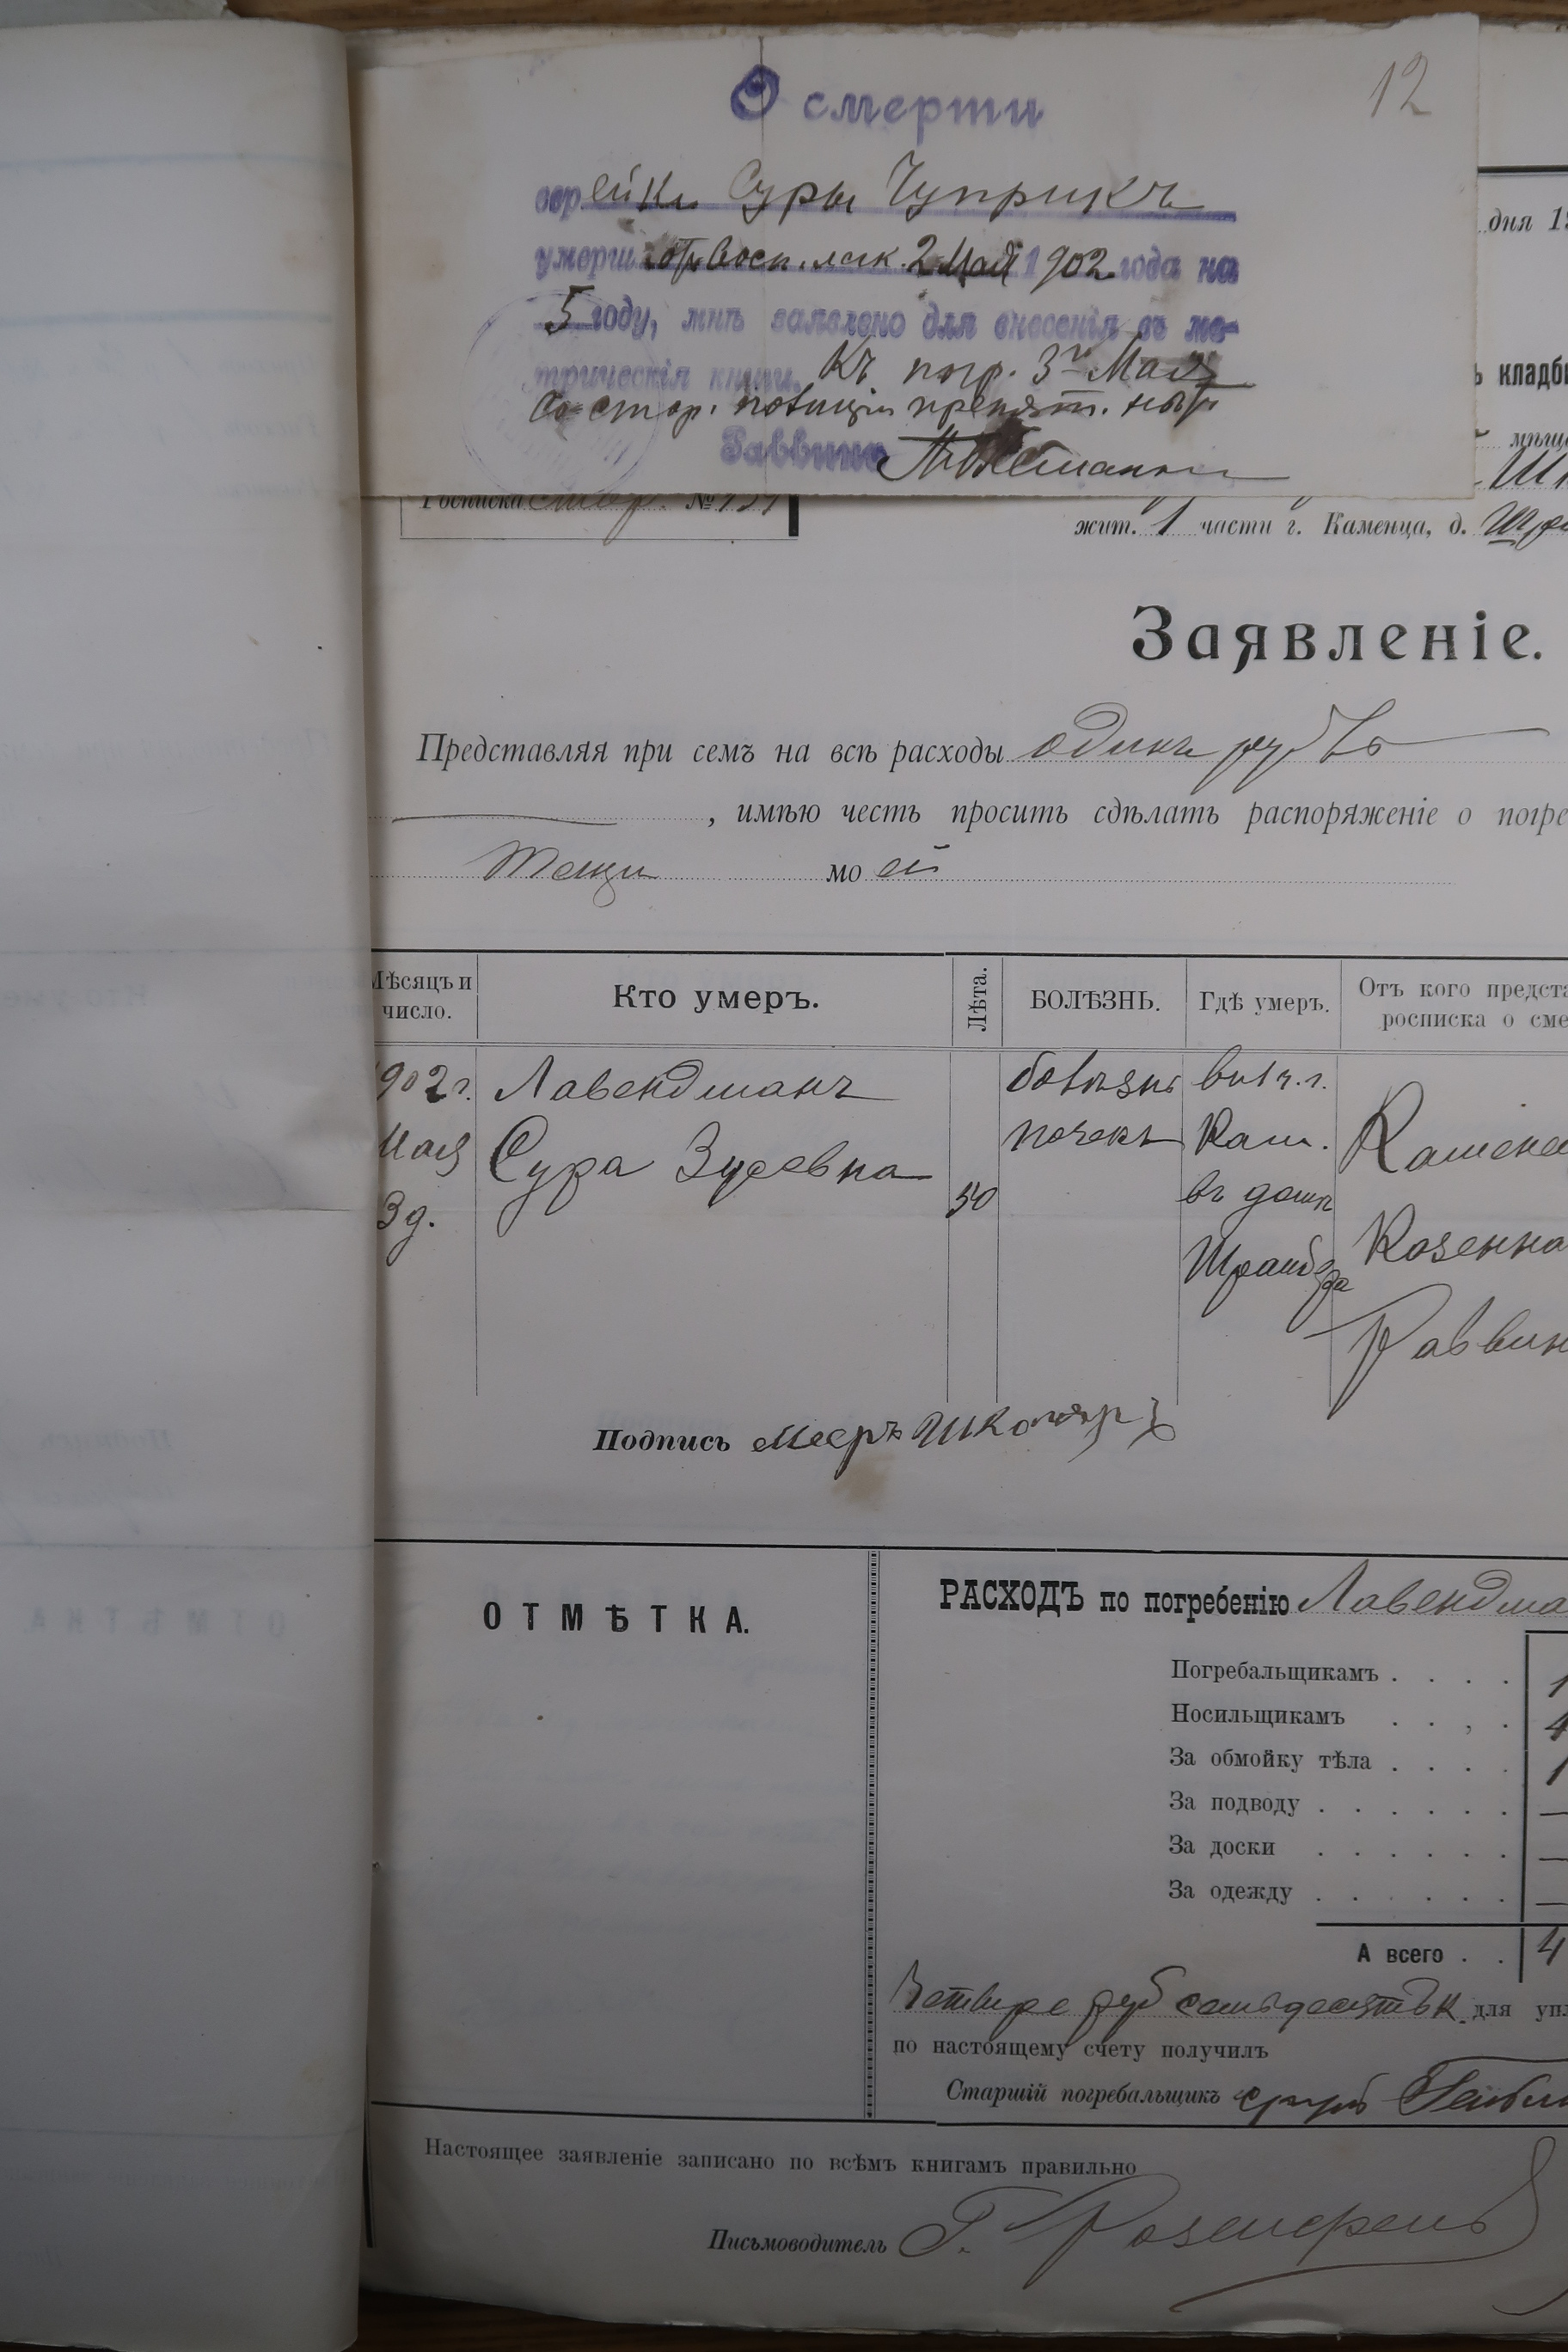 12
О смерти
еврейки Суры Чуприкъ
умерш от восп. 2 Мая 1902 года на
5 году, мнѣ заявлено для внесенія въ ме-
трическія книги. Къ погр. 3го Мая
Со стор. полиціи препят. нѣтъ
Раввинъ
дня 19
кладби
мѣща
Росписка № 
жит. 1 части г. Каменца, д.
Заявленіе.
Представляя при семъ на всѣ расходы одинъ рубль
, имѣю честь просить сдѣлать распоряженіе о погре
тещи моей
Мѣсяцъ и число. Кто умеръ. Лѣта. БОЛѢЗНЬ. Гдѣ умеръ. Отъ кого предста
росписка о сме
902 г. Лавендманъ болѣзнь в. 1 ч. г.
Мая Сура Зусевна почекъ Кам. Камене
3 д. 50 въ домѣ
Шрайбера Казенна
Раввин
Подпись Мееръ Школяръ
ОТМѢТКА.
РАСХОДЪ по погребенію Лавендма
Погребальщикамъ . . . . 1
Носильщикамъ . . . . 4
За обмойку тѣла . . . . 1
За подводу . . . . . . —
За доски . . . . . . —
За одежду . . . . . . —
А всего . . 4
Четыре руб семьдесятъ к. для упл
по настоящему счету получилъ
Старшій погребальщикъ
Настоящее заявленіе записано по всѣмъ книгамъ правильно
Письмоводитель Г.